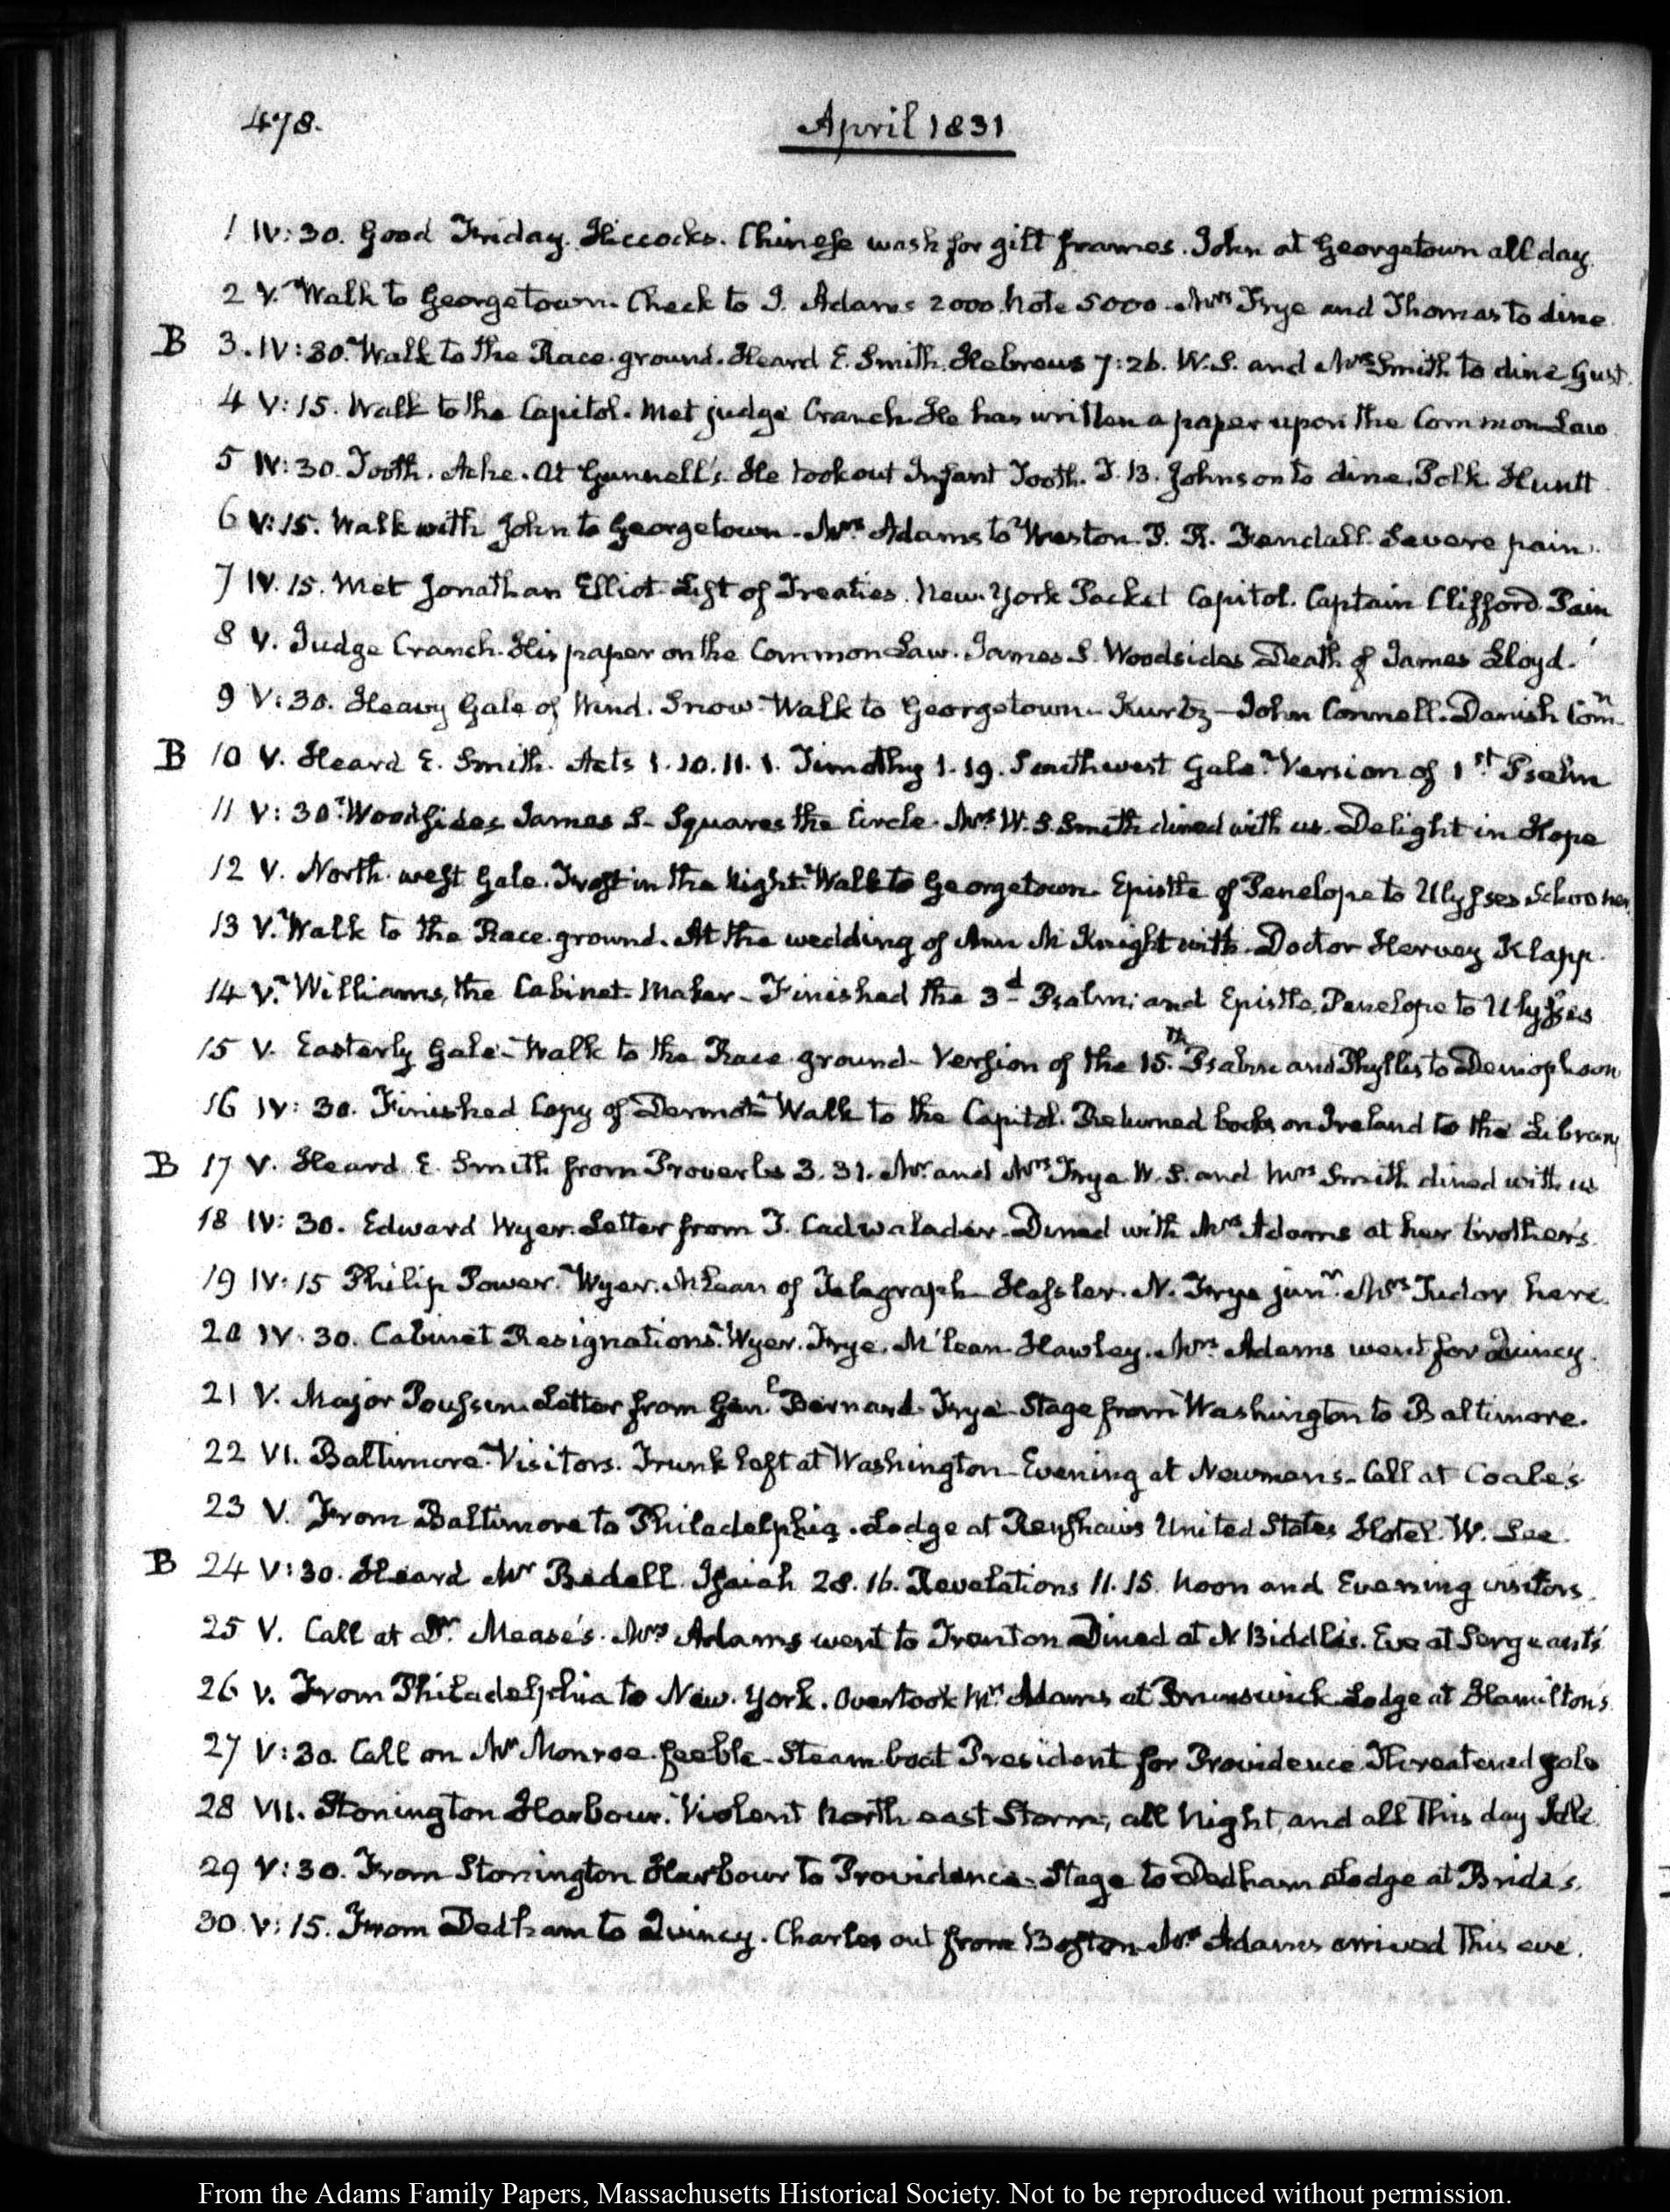 478.
April 1831
1 IV:30. Good Friday. Hiccocks. Chinese wash for gilt frames. John at Georgetown all day.
2 V. Walk to Georgetown. Check to J. Adams 2000. Note 5000. Mrs Frye and Thomas to dine.
B 3. IV:30. Walk to the Race-ground. Heard E. Smith. Hebrews 7:26. W.S. and Mrs Smith to dine. Gust.
4 V:15. Walk to the Capitol. Met judge Cranch. He has written a paper upon the Common Law.
5 IV:30. Tooth-Ache. At Gunnell's. He took out Infant Tooth. T. B. Johnson to dine. Polk. Huntt
6 V:15. Walk with John to Georgetown. Mrs Adams to Weston. P. R. Fendall. Severe pain.
7 IV.15. Met Jonathan Elliot. List of Treaties. New-York Packet Capitol. Captain Clifford. Pain
8 V. Judge Cranch. His paper on the Common Law. James S. Woodsides. Death of James Lloyd.
9 V:30. Heavy Gale of Wind. Snow. Walk to Georgetown. Kurtz — John Connell. Danish Comn
B 10 V. Heard E. Smith. Acts 1.10.11. 1. Timothy 1.19. Southwest Gale. Version of 1st Psalm
11 V:30. Woodsides James S. Squares the Circle. Mrs W. S. Smith dined with us. Delight in Hope
12 V. North-west Gale. Frost in the Night. Walk to Georgetown. Epistle of Penelope to Ulysses Schooner
13 V. Walk to the Race-ground. At the wedding of Ann McKnight with Doctor Hervey Klapp.
14 V. Williams, the Cabinet-Maker. Finished the 3d Psalm; and Epistle, Penelope to Ulysses
15 V. Easterly Gale. Walk to the Race-ground. Version of the 15th Psalm and Phyllis to Demophoon
16 IV:30. Finished Copy of Dermot. Walk to the Capitol. Returned books on Ireland to the Library
B 17 V. Heard E. Smith from Proverbs 3.31. Mr and Mrs Frye W. S. and Mrs Smith dined with us
18 IV:30. Edward Wyer. Letter from T. Cadwalader. Dined with Mrs Adams at her brother's.
19 IV:15 Philip Power. Wyer. McLean of Telegraph. Hassler. N. Frye junr. Mrs Tudor here.
20 IV.30. Cabinet Resignations. Wyer. Frye. McLean. Hawley. Mrs Adams went for Quincy.
21 V. Major Poussin. Letter from Genl Bernard. Frye. Stage from Washington to Baltimore.
22 VI. Baltimore. Visitors. Trunk left at Washington. Evening at Newman's. Call at Coale's
23 V. From Baltimore to Philadelphia. Lodge at Renshaw's United States Hotel. W. Lee.
B 24 V:30. Heard Mr Bedell. Isaiah 28.16. Revelations 11.15. Noon and Evening visitors.
25 V. Call at Dr. Mease's. Mrs Adams went to Trenton. Dined at N Biddle's. Eve at Sergeant's
26 V. From Philadelphia to New-York. Overtook Mrs Adams at Brunswick. Lodge at Hamilton's
27 V:30. Call on Mr Monroe. feeble. Steam-boat President for Providence. Threatened gale
28 VII. Stonington Harbour. Violent North-east Storm; all Night, and all this day. Idle
29 V:30. From Stonington Harbour to Providence. Stage to Dedham. Lodge at Bride's.
30. V:15. From Dedham to Quincy. Charles out from Boston. Mrs Adams arrived this eve.
From the Adams Family Papers, Massachusetts Historical Society. Not to be reproduced without permission.